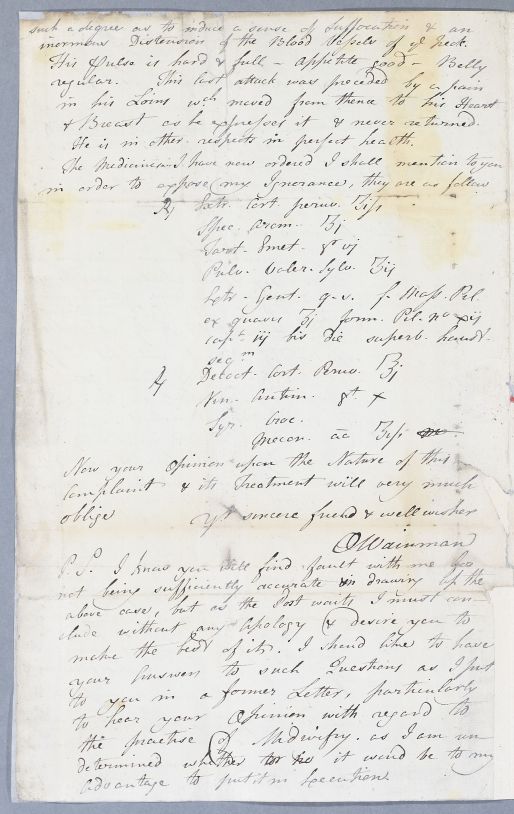 such a degree as to induce a sense of Suffocation & an
inormous Distension of the Blood Vessels of ye Neck.
His Pulse is hard & full - appetite good - Belly
regular. This last attack was preceded by a pain
in his Loins wch moved from thence to his Heart
& Breast as he expresses it & never returned.
He is in other respects in perfect health.
The Medicines I have now ordered I shall mention to you
in order to expose my Ignorance, they are as follow
℞ Extr. Cort. peruv. ʒifs
Spec. Arom. ʒj
Tart. Emet. gr vj
Pulv. Valer. Sylv. ʒij
Extr. Gent. q.s. f. Mass. Pil.
ex quavis ʒj form. Pil. no xij
capt iij bis Die superb. haust.
seqm
℞ Decoct. Cort. Peruv. ℥j
Vin. Antim. gt. x
Syr. Croc.
Mecon. aa ʒifs
Now your Opinion upon the Nature of this
Complaint & its Treatment will very much
oblige Yr sincere friend & wellwisher
O Wainman
P.S. I know you will find fault with me for
not being sufficiently accurate in drawing up the
above case, but as the Post waits I must con-
clude without any Apology & desire you to
make the best of it. I shoud like to have
your Answer to such Questions as I put
to you in a former Letter, particularly
to hear your Opinion with regard to
the practise of Midwifry. as I am un
determined whether or no it woud be to my
advantage to put it in Execution